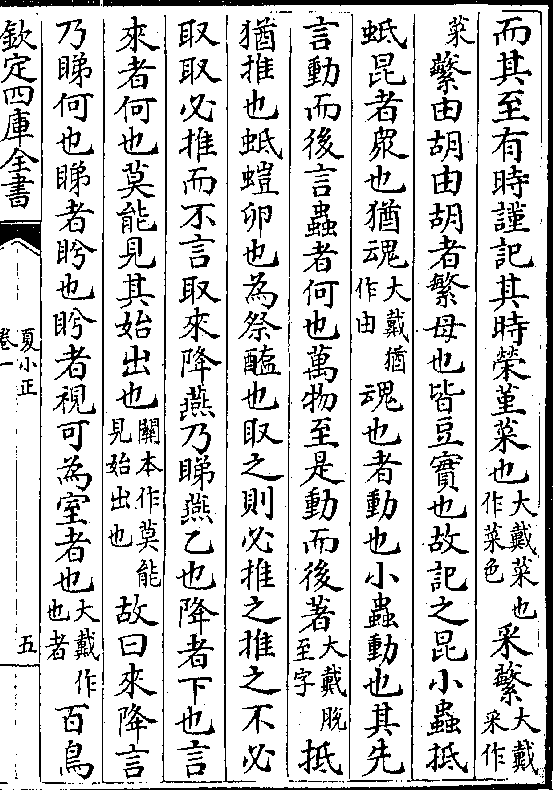 而其至有時謹記其時榮堇菜也大戴菜也作菜色采蘩大戴采作
菜蘩由胡由胡者繁母也皆豆實也故記之昆小蟲抵
蚳昆者衆也猶魂大戴猶作由魂也者動也小蟲動也其先
言動而後言蟲者何也萬物至是動而後著大戴脫至字抵
猶推也蚳螘卵也為祭醢也取之則必推之推之不必
取取必推而不言取來降燕乃睇燕乙也降者下也言
來者何也莫能見其始出也關本作莫能見始出也故曰來降言
乃睇何也睇者眄也眄者視可為室者也大戴作也者百鳥
欽定四庫全書
夏小正
卷一
五